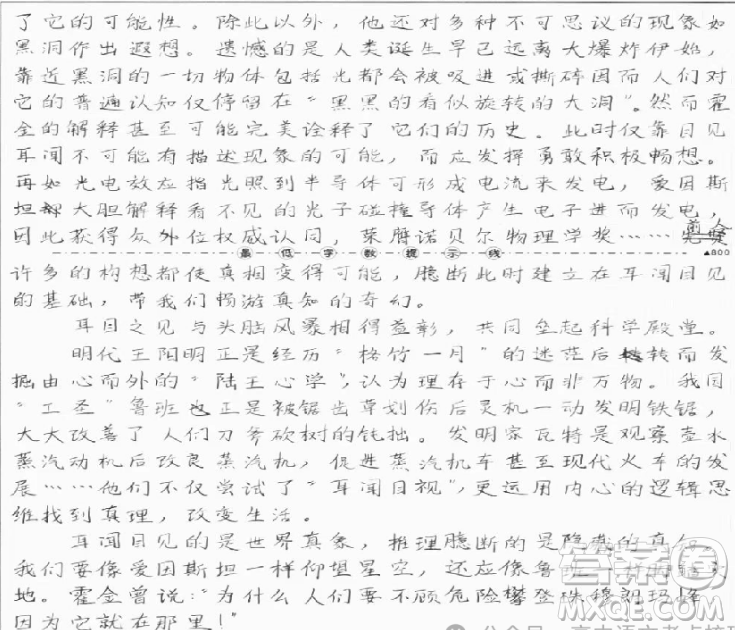 了它的可能性。除此以外，他还对多种不可思议的现象如
黑洞作出遐想。遗憾的是人类诞生早已远离大爆炸伊始，
靠近黑洞的一切物体包括光都会被吸进或撕碎因而人们对
它的普遍认知仅停留在“黑黑的看似旋转的大洞”。然而霍
金的解释甚至可能完美诠释了它们的历史。此时仅靠目见
耳闻不可能有描述现象的可能，而应发挥勇敢积极畅想。
再如光电放应指光照到半导体可形成电流来发电，爱因斯
坦大胆解释看不见的光子碰撞导体产生电子进而发电，
因此获得众外位权威认同，荣膺诺贝尔物理学奖……
最低字数提示线 ▲800
许多的构想都使真相变得可能，臆断此时建立在耳闻目见
的基础，带我们畅游真知的奇幻。
耳目之见与头脑风暴相得益彰，共同垒起科学殿堂。
明代王阳明正是经历“格竹一月”的迷茫后转而发
掘由心而外的“陆王心学”，认为理在于心而非万物。我国
“工圣”鲁班也正是被锯齿草划伤后灵机一动发明铁锯，
大大改善了人们刀斧砍树的钝拙。发明家瓦特是观察壶水
蒸汽动机后改良蒸汽机，促进蒸汽机车甚至现代火车的发
展……他们不仅尝试了“耳闻目视”，更运用内心的逻辑思
维找到真理，改变生活。
耳闻目见的是世界真象，推理臆断的是隐藏的真
我们要像爱因斯坦一样仰望星空，还应像鲁
地。霍金曾说：“为什么人们要不顾危险攀登珠穆朗玛峰
因为它就在那里！”
答案圈
MXQE.COM